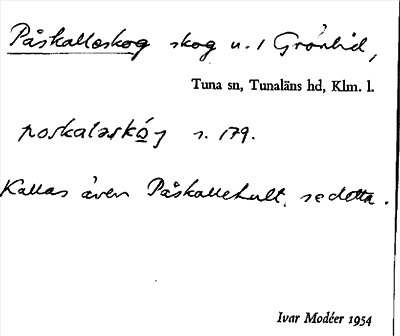 Påskallaskog skog u. 1 Grönlid,
Tuna sn, Tunaläns hd, Klm. l.
poskalaskóg s. 179.
Kallas även Påskallehult, se detta.
Ivar Modéer 1954